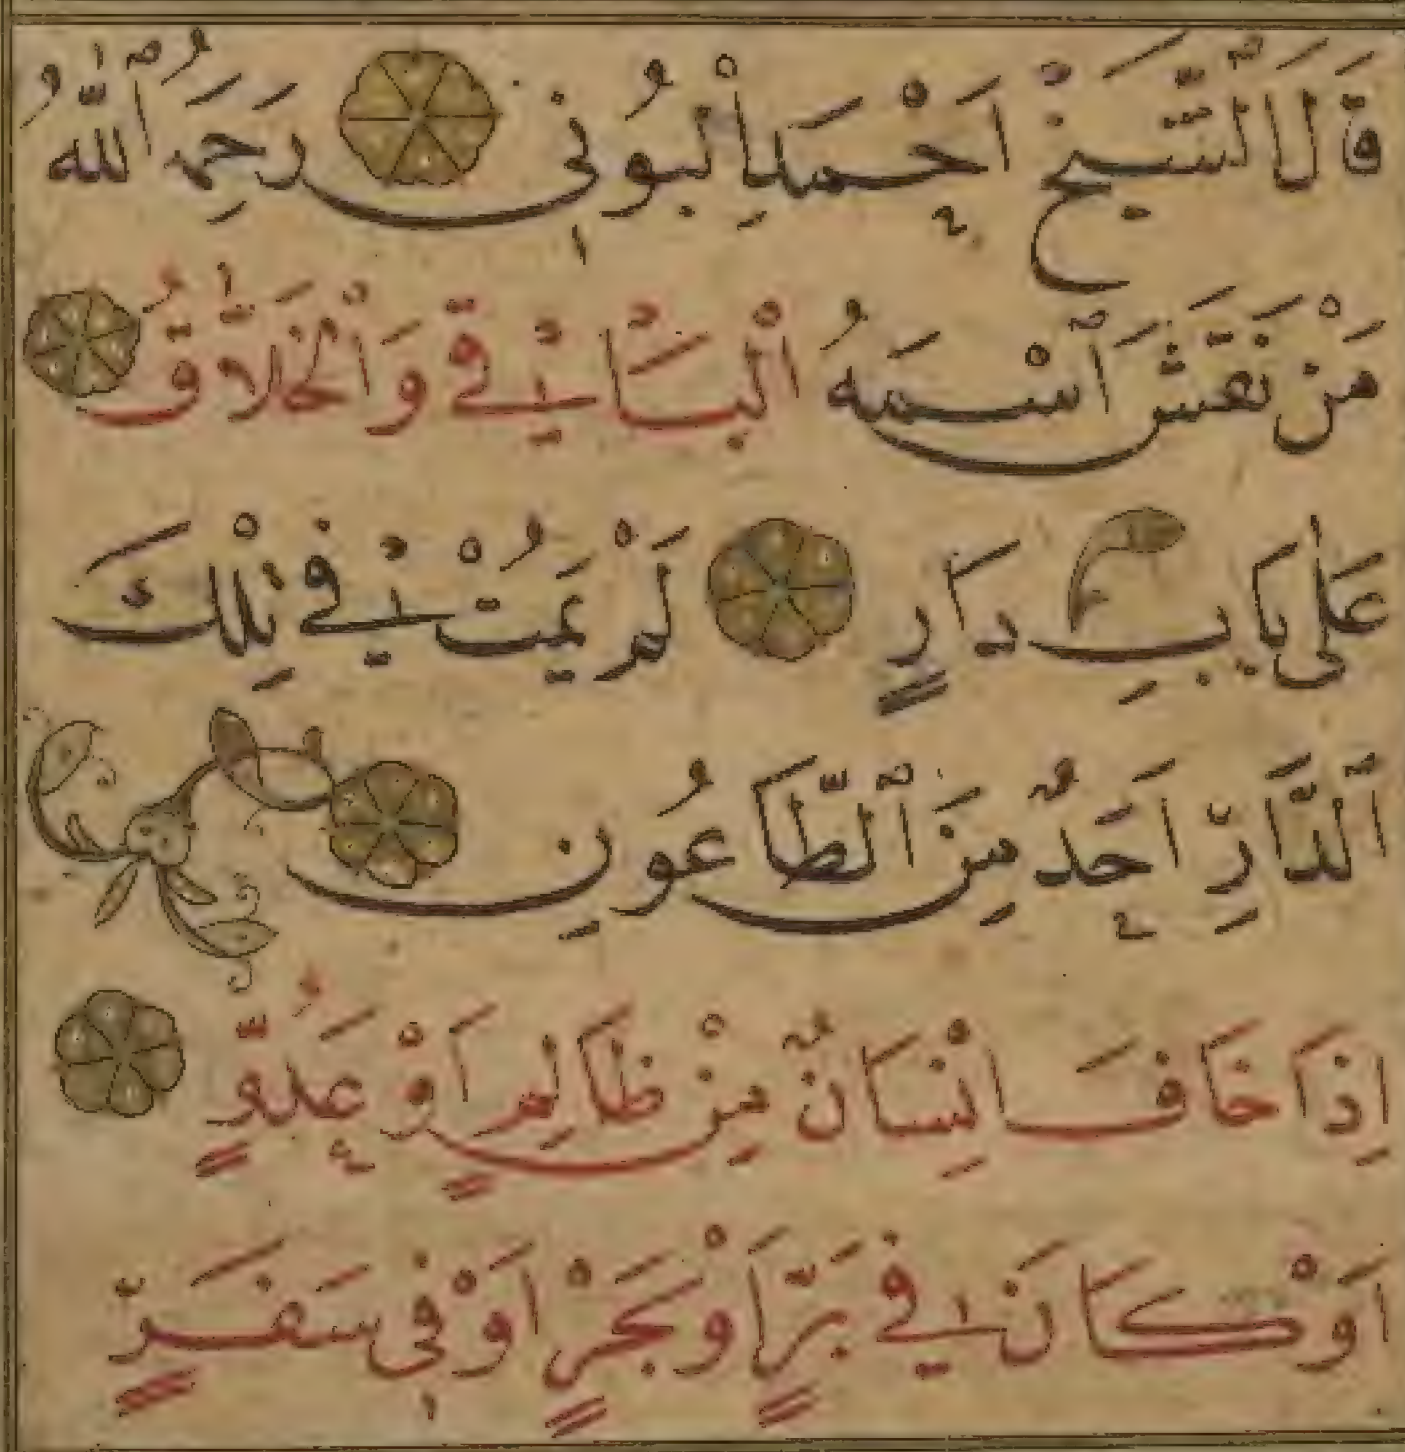 قَالَ الشَّيْخْ اَحْمَدِ اْلبُونِي رَحِمَهُ اللّٰهُ
مَنْ نَقَشَ اَسْمَهُ الْبَاقِي وَالْخَلَّاقُ
عَلٰى بَابِ دَارٍ لَمْ يَمُتْ فِي تِلْكَ
اَلدَّارِّ اَحَدٌ مِنَ الطَّاعُونِ
اِذَا خَافَ اِنْسَانٌ مِنْ ظَالِمٍ اَوْ عَدُوٍّ
اَوْ كَانَ فِي بَرٍّ اَوْ بَحْرٍ اَوْ فِي سَفَرٍّ